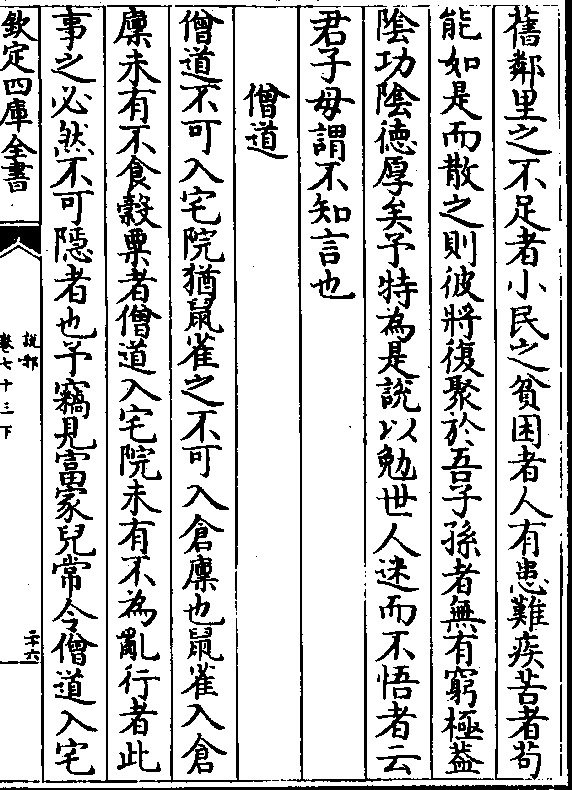 舊鄰里之不足者小民之貧困者人有患難疾苦者苟
能如是而散之則彼將復聚於吾子孫者無有窮極葢
陰功陰徳厚矣予特為是說以勉世人迷而不悟者云
君子毋謂不知言也
僧道
僧道不可入宅院猶鼠雀之不可入倉廪也鼠雀入倉
廪未有不食穀粟者僧道入宅院未有不為亂行者此
事之必然不可隱者也予竊見富家兒常令僧道入宅
欽定四庫全書
說郛
卷七十三下
二十六